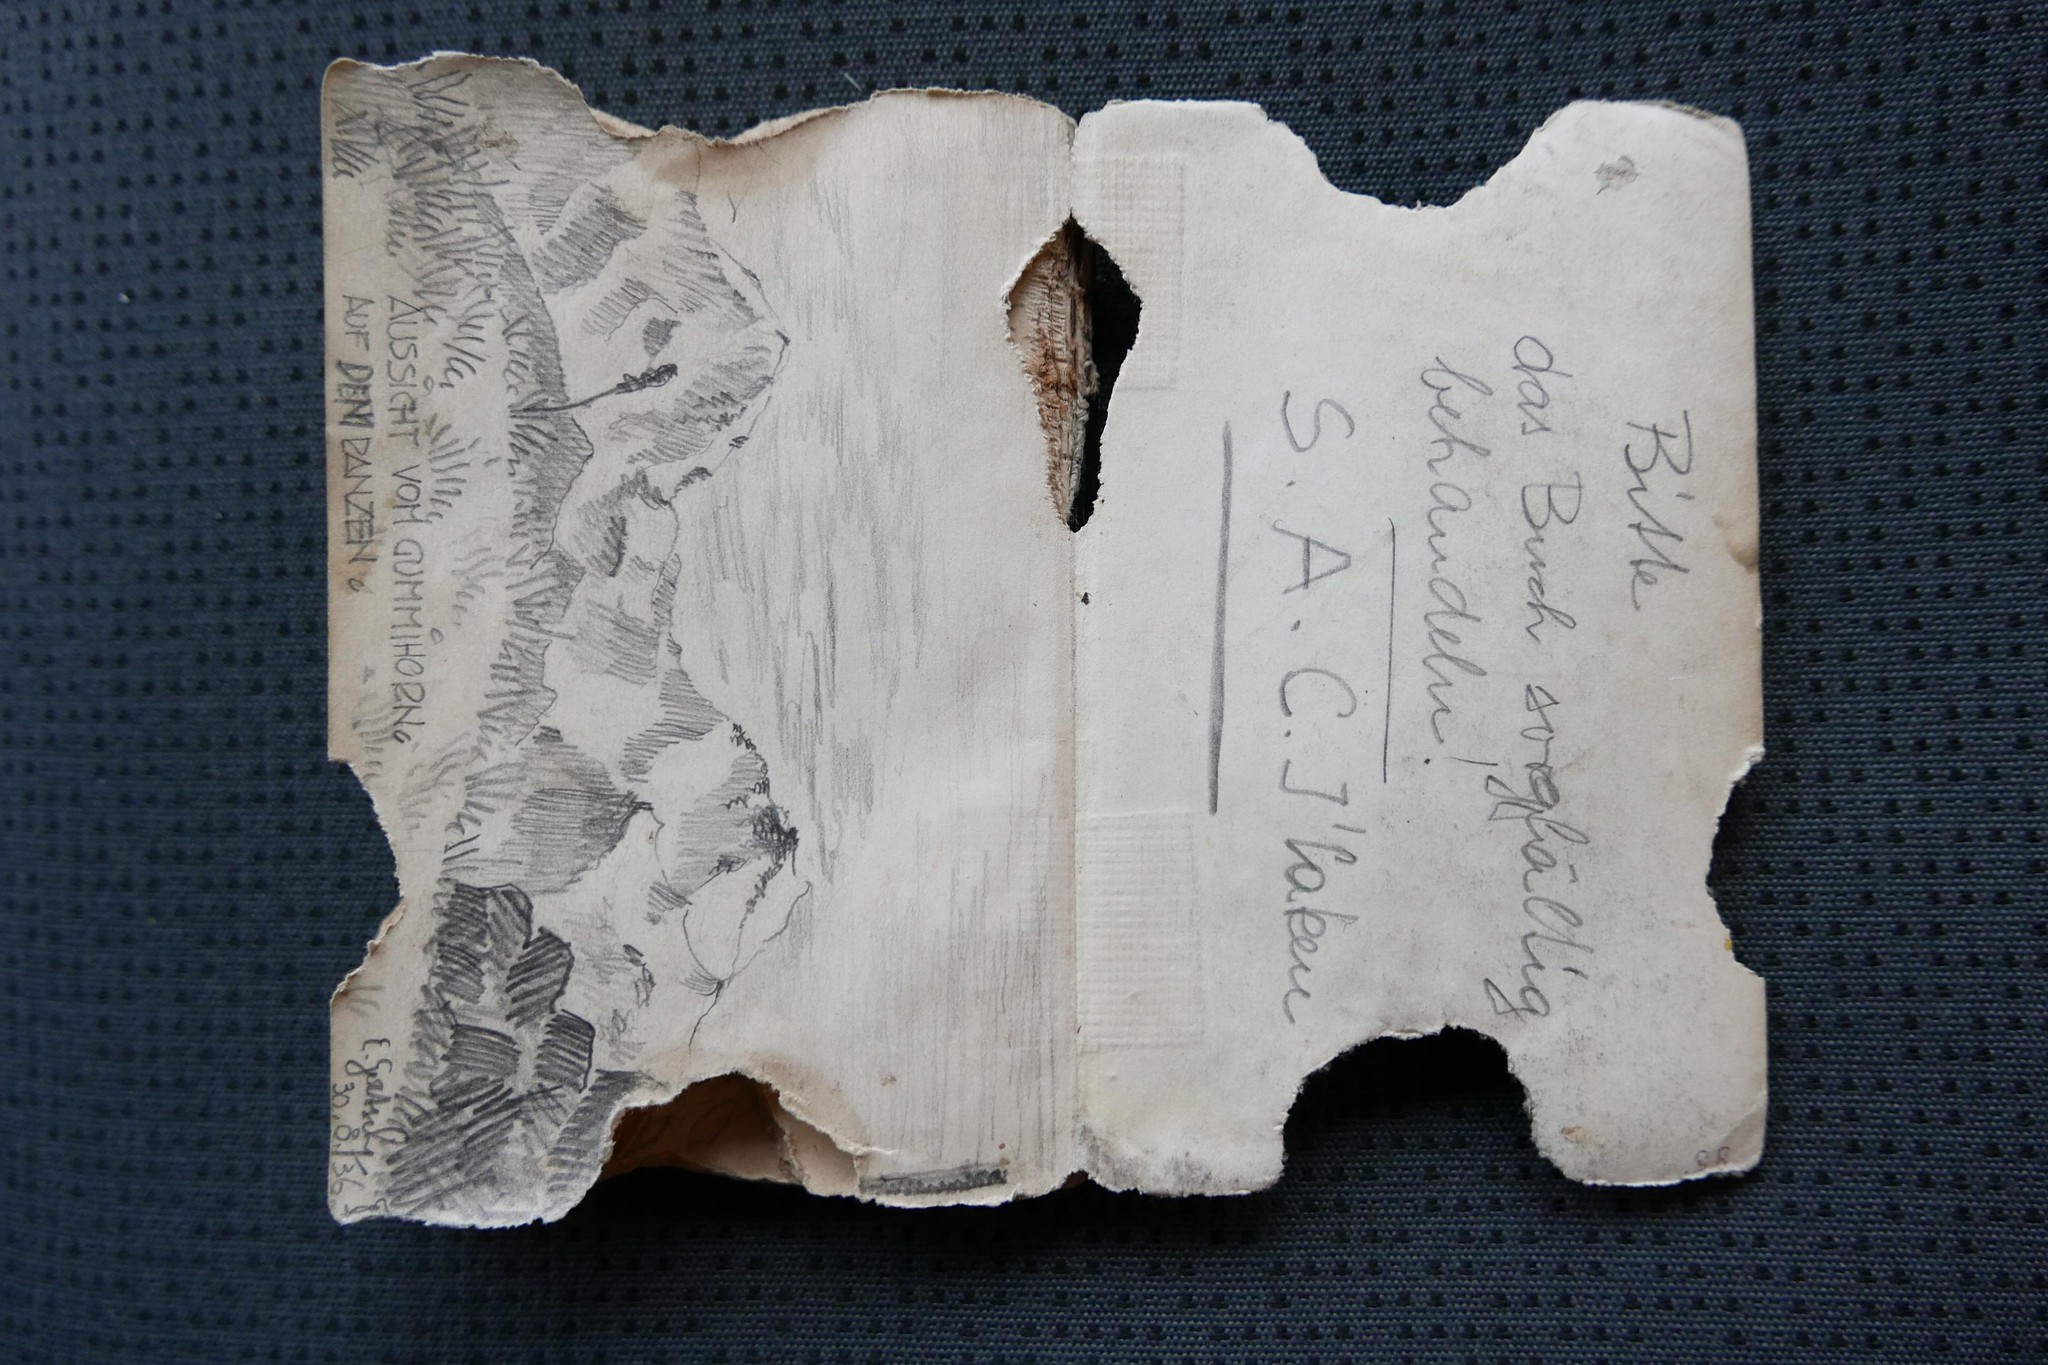 Bitte
das Buch sorgfältig
behandeln!
S. A. C. J'laken
AUSSICHT VOM GUMMIHORN,
AUF DEN RANZEN.
30.8.36